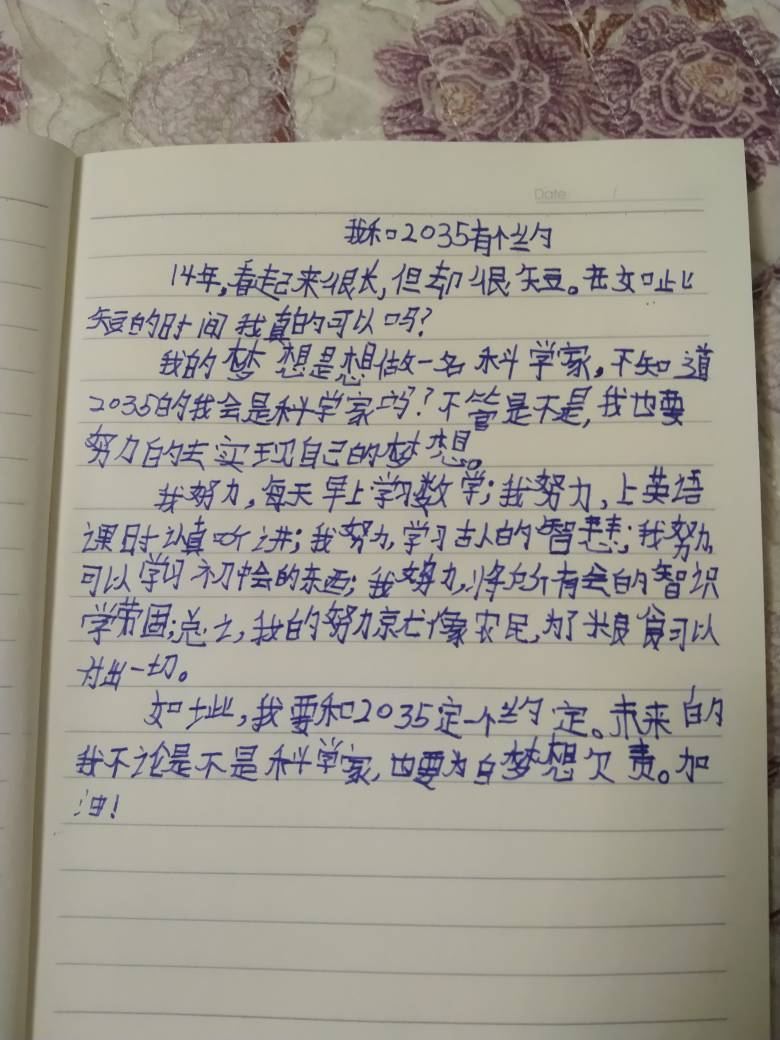 Date: /
我和2035有个约
14年,看起来很长,但却很短。在如此
短的时间我真的可以吗?
我的梦想是想做一名科学家,不知道
2035的我会是科学家吗?不管是不是,我也要
努力的去实现自己的梦想。
我努力,每天早上学习数学;我努力,上英语
课时认真听讲;我努力,学习古人的智慧;我努力,
可以学习初中会的东西;我努力,将所有会的智识
学牢固;总之,我的努力就像农民,为了粮食可以
付出一切。
如此,我要和2035定一个约定。未来的
我不论是不是科学家,也要为自梦想欠责。加
油!